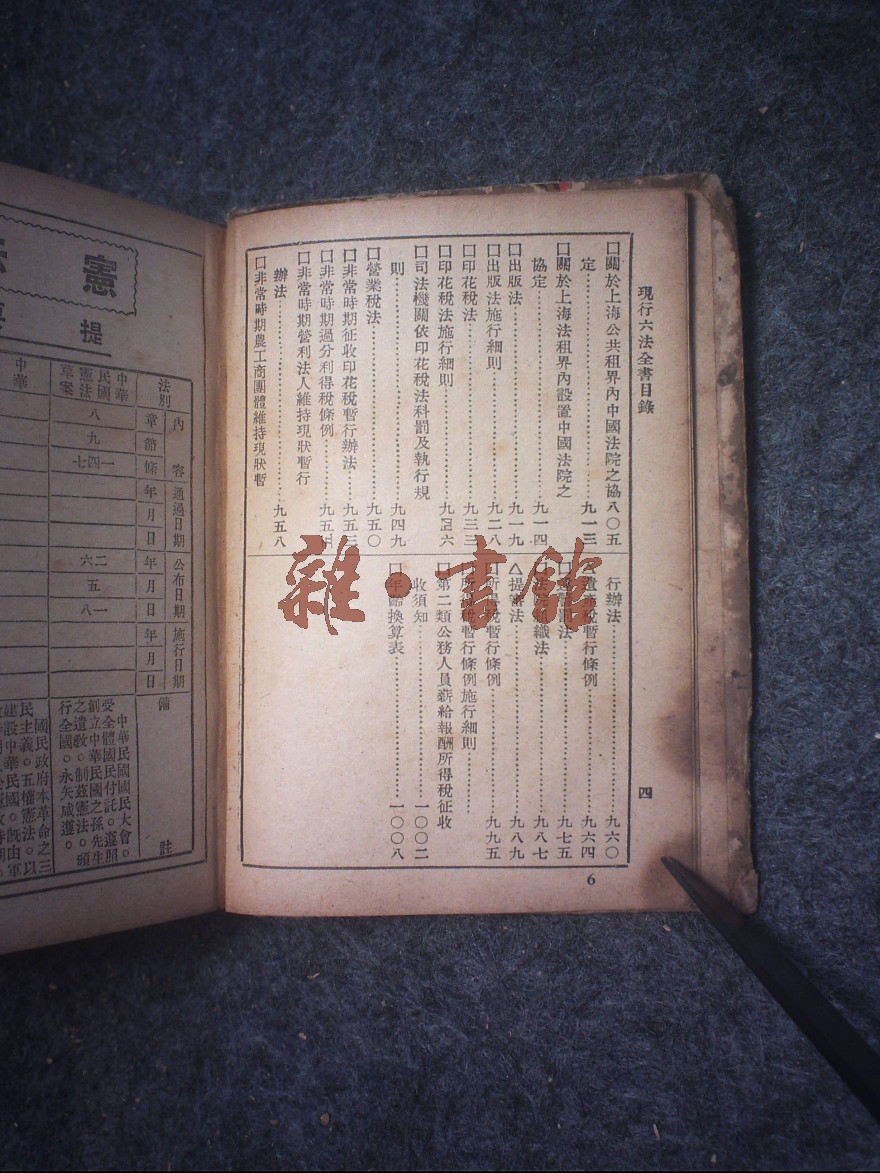 現行六法全書目錄
四
□關於上海公共租界內中國法院之協八〇五
定……九一三
□關於上海法租界內設置中國法院之
協定……九一四
□出版法……九一九
□出版法施行細則……九二八
□印花稅法……九三三
□印花稅法施行細則……九四六
□司法機關依印花稅法科罰及執行規
則……九四九
□營業稅法……九五〇
□非常時期征收印花稅暫行辦法……九五三
□非常時期過分利得稅條例……九五
□非常時期營利法人維持現狀暫行
辦法……九五八
□非常時期農工商團體維持現狀暫
行辦法……九六〇
遺產稅暫行條例……九六四
法……九七五
組織法……九八七
△提審法……九八九
所得稅暫行條例……九九五
所得稅暫行條例施行細則
□第二類公務人員薪給報酬所得稅征收
收須知……一〇〇二
□年齡換算表……一〇〇八
6
雜·書館
憲
提
法別
內容
章
節
條
通過日期
年
月
日
公布日期
年
月
日
施行日期
年
月
日
備註
中華民國憲法草案
八
九
一四七
二六
五
一八
中華民國國民大會。
受全體國民付託。遵照
創立中華民國之孫先生
之遺敎。制茲憲法。頒
行全國。永矢咸遵。
中華
國民政府本革命之三
民主義。五權憲法。以
建設中華民國。旣由軍